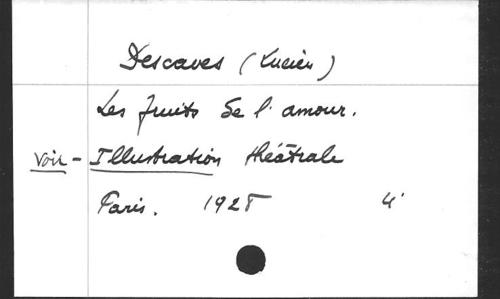 Descaves (Lucien)
Les fruits de l'amour.
Voir - Illustration théâtrale
Paris. 1928 4°